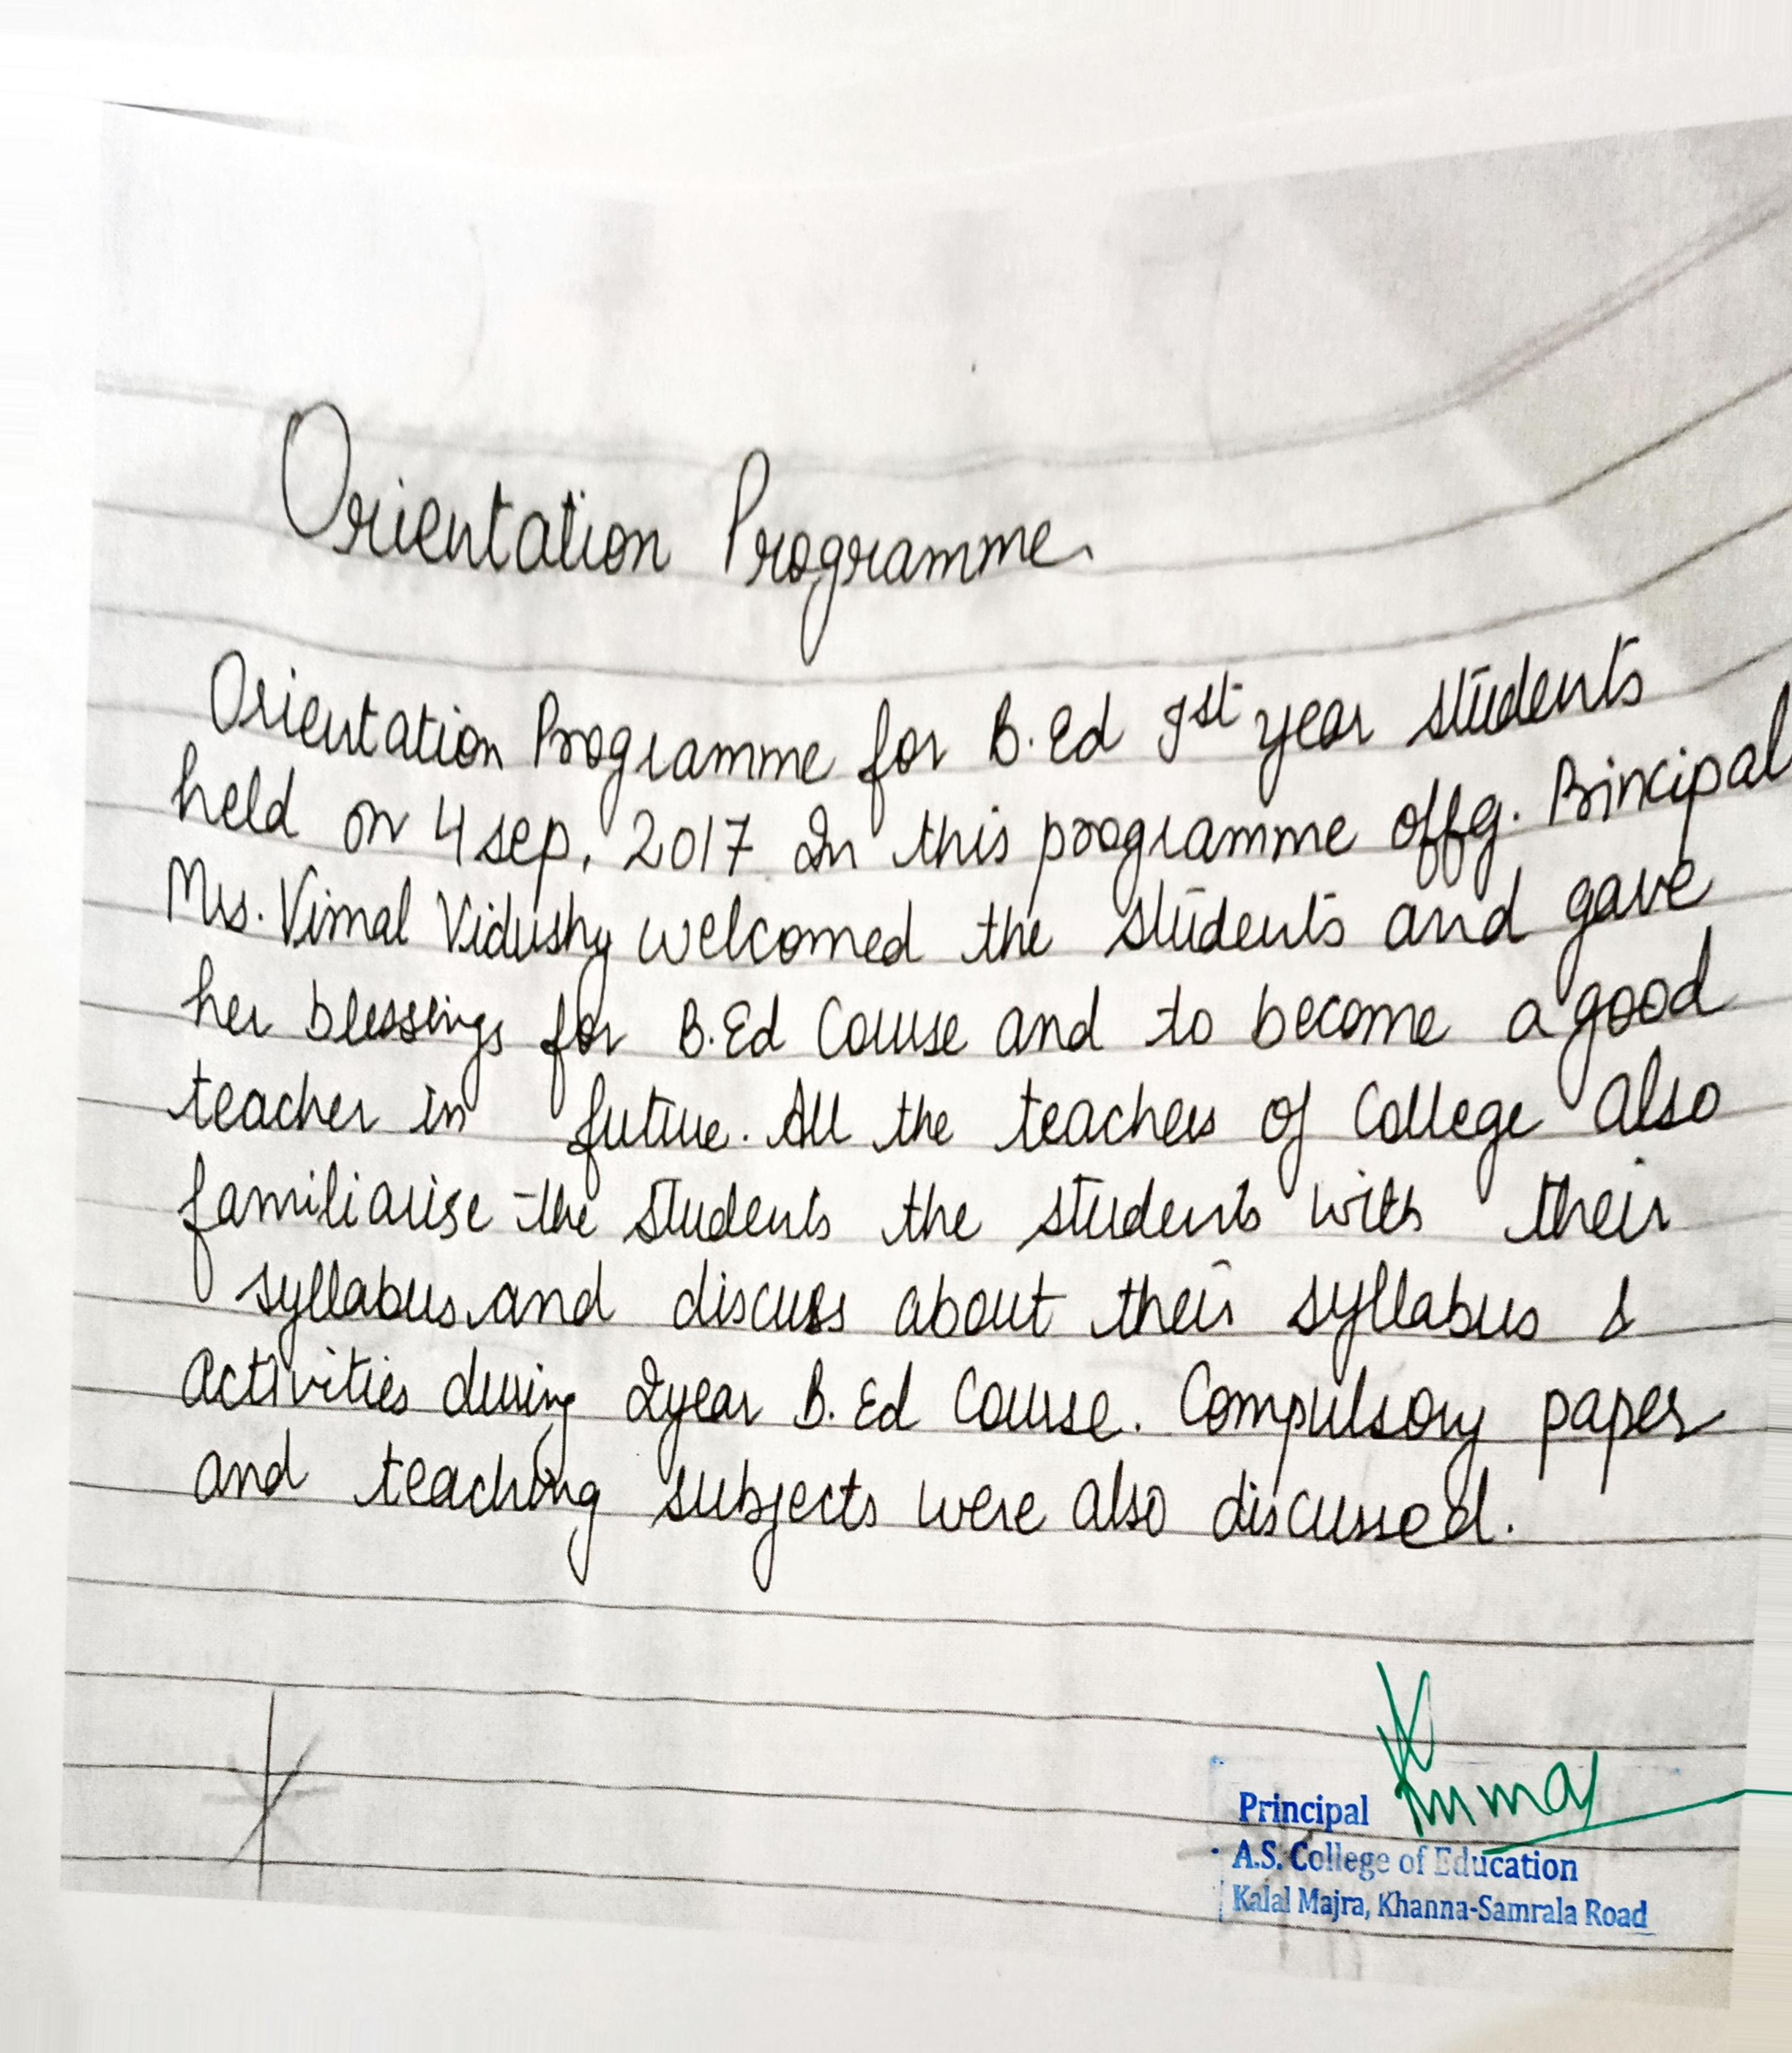 Orientation Programme.
Orientation Programme for B.Ed Ist year students
held on 4 sep, 2017. In this programme offg. Principal
Mrs. Vimal Vidushy welcomed the students and gave
her blessings for B.Ed Course and to become a good
teacher in future. All the teachers of College also
familiarise the students the students with their
syllabus and discuss about their syllabus &
activities during 2year B.Ed Course. Compulsory paper
and teaching subjects were also discussed.
Principal
A.S. College of Education
Kalal Majra, Khanna-Samrala Road